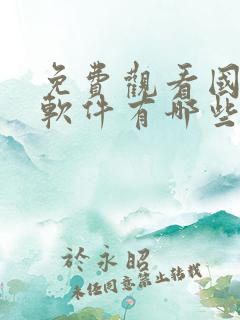 免費觀看國
軟件有哪些
於永昭
未任同意禁止转载